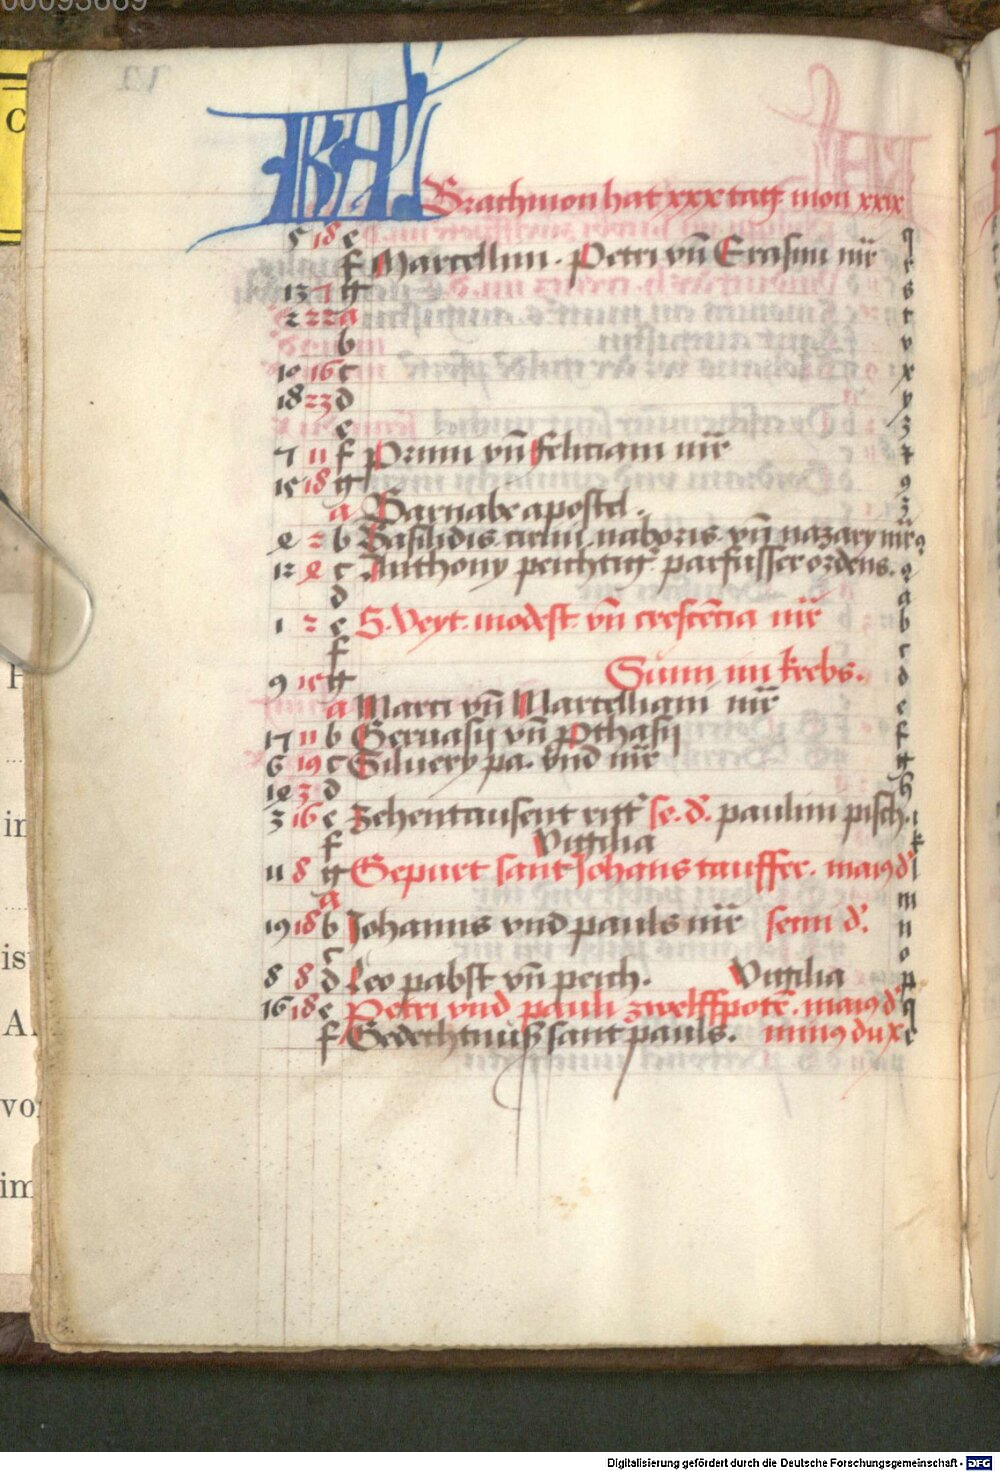 KAL
Brachmon hat xxx tag mon xxix
5 18 e q
f Marcellini . Petri vn̄ Erasmi mr̄ r
13 7 g s
2 22 a t
b v
10 16 c x
18 23 d y
e z
7 11 f Primi vn̄ feliciani mr̄
15 18 g 9
a Barnabe apostel . z
4 2 b Basilidis cirini naboris vn̄ nazary mr̄
12 4 c Anthony peichtig parfusser ordens .
d a
1 2 e S. Veyt . modest vn̄ crescēcia mr̄ b
f c
9 15 g Sunn im krebs . d
a Marci vn̄ Marcelliani mr̄ e
17 11 b Geruasii vn̄ Prthasii f
6 19 c Siluery pa . vnd mr̄ g
14 3 d h
3 16 e Zehentausent ritt̛ se . d̛ . paulini pisch . i
f Vigilia k
11 8 g Gepurt sant Johans tauffer . maiꝯ d̛ l
a m
19 18 b Johanns vnd pauls mr̄ semi d̛ . n
c o
8 8 d Leo pabst vn̄ peich . Vigilia p
16 18 e Petri vnd pauli zwelffpotē . maiꝯ d̛ q
f Gedechtnuß sant pauls . minꝯ dux r
Digitalisierung gefördert durch die Deutsche Forschungsgemeinschaft - DFG